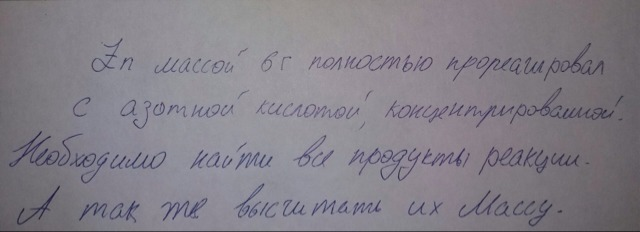 Zn массой 6г полностью прореагировал
с азотной кислотой, концентрированной.
Необходимо найти все продукты реакции.
А так же высчитать их массу.